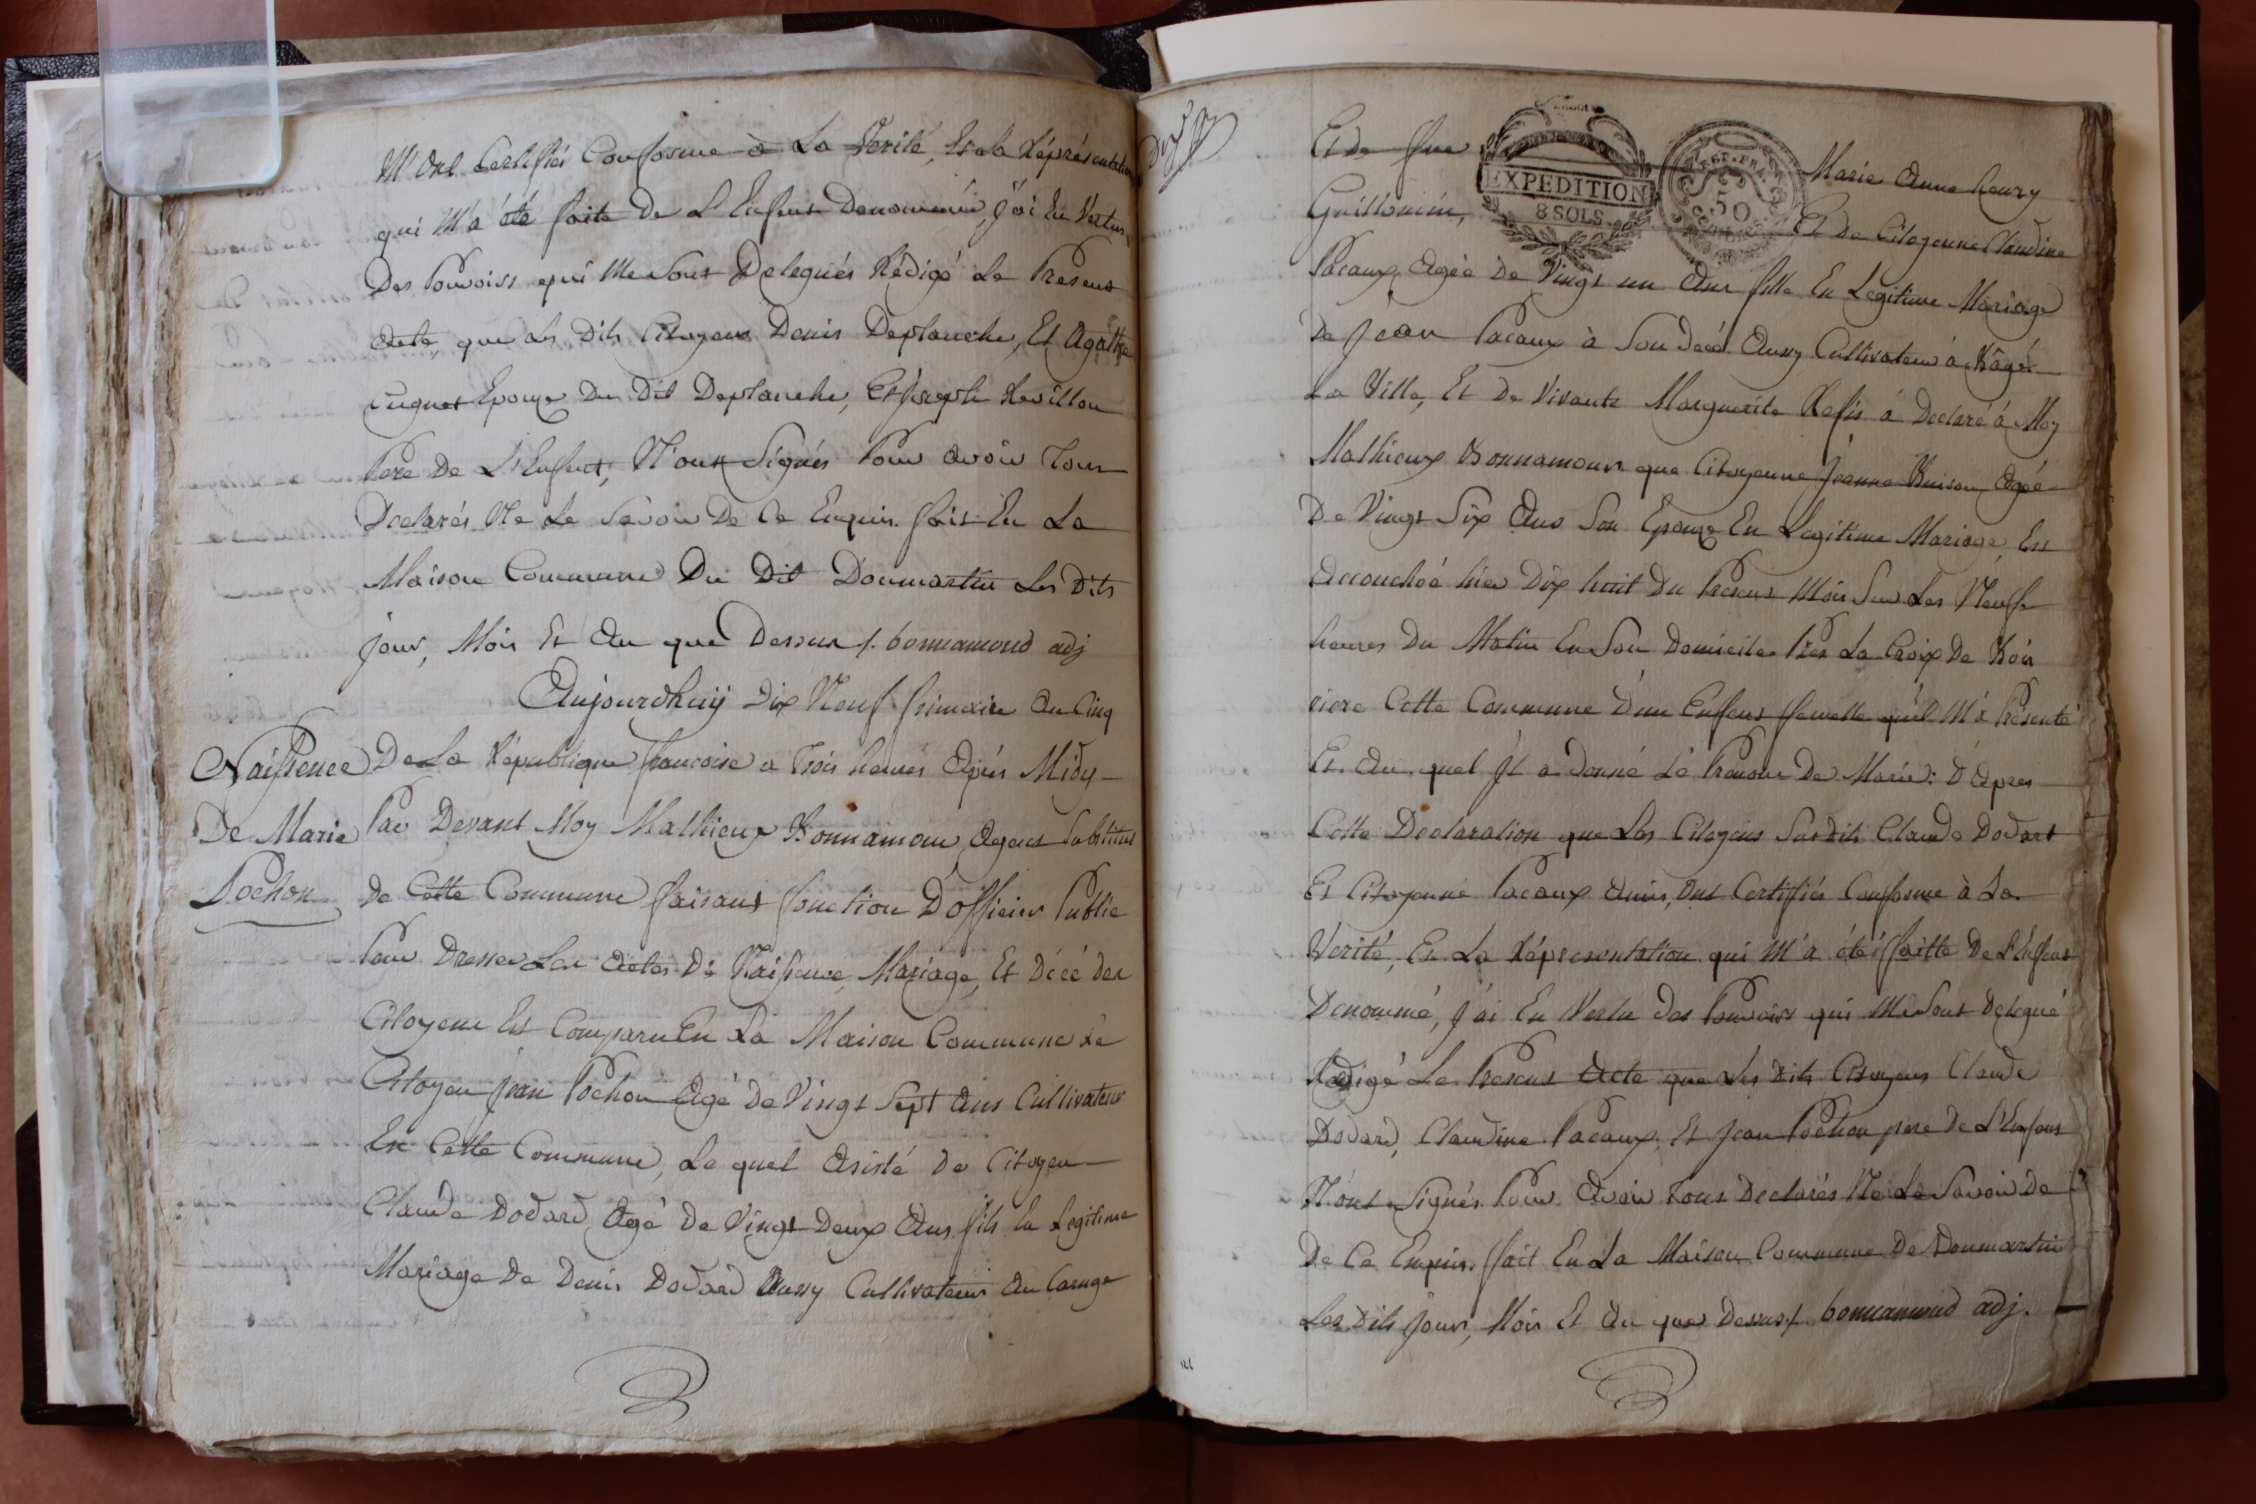 M'ont Certiffiés Conforme à La Verité, Et a la Répresentation
qui M'a été faite De L'Enfant Denommée, j'ai En Vertus
Des Pouvoirs qui Me Sont Delegués Rédigé Le Present
Acte que Les Dits Citoyens Denis Deplanche, Et Agathe
Cuguet Epouze Du Dit Deplanche, Et Joseph Revillon
Pere De L'Enfant, N'ont Signés Pour avoir Tous
Declarés Ne Le Savoir De Ce Enquis. fait En La
Maison Commune Du Dit Donmartin Les Dits
jour, Mois Et An que Dessus /. bonnamoud adj
Aujourdhuij Dix Neuf frimaire An Cinq
Naissence
De Marie
Pochon
De La République francoise a Trois heures Après Midy
Par Devant Moy Mathieux Bonnamour Agent Substitut
De Cette Commune faisant fonction D'officier Public
Pour Dresser Les Actes De Naissence, Mariage, Et Décé des
Citoyens Est Comparu En La Maison Commune Le
Citoyen Jean Pochon Agé De Vingt Sept Ans Cultivateur
En Cette Commune, Le quel Asisté De Citoyen
Claude Dodard, Agé De Vingt Deux Ans fils En Legitime
Mariage De Denis Dodard Aussy Cultivateur Au Carruge
Et De fue Marie Anne henry
EXPEDITION
8 SOLS
50
Guillomin, Et De Citoyenne Claudine
Pacaux, Agée De Vingt un Ans fille En Legitime Mariage
De Jean Pacaux à Son Decé Aussy Cultivateur à Bâgé
La Ville, Et De Vivante Marguerite Refis à Declaré à Moy
Mathieux Bonnamour que Citoyenne Jeanne Buison, Agée
De Vingt Six Ans Son Epouze En Legitime Mariage, Est
Accouchée hier Dix huit Du Present Mois Sur Les Neuf
heures Du Matin En Son Domicile Pres La Croix De Boi
siere Cette Commune D'un Enfant femelle qu'il M'a Présenté
Et Au quel Il a Donné Le Prenom De Marie: D'apres
Cette Declaration que Les Citoyens Sus Dits Claude Dodard
Et Citoyenne Pacaux Amis, Ont Certiffiés Conforme à La
Verité, Et La Répresentation qui M'a été faitte De L'Enfant
Denommé, J'ai En Vertu Des Pouvoirs qui Me Sont Delegué
Redigé Le Present Acte que Les Dits Citoyens Claude
Dodard, Claudine Pacaux, Et Jean Pochon pere De L'Enfant
N'ont Signés Pour Avoir Tous Declarés Ne Le Savoir De
De Ce Enquis. fait En La Maison Commune De Donmartin
Les Dits Jour, Mois Et An que Dessus /. bonnamoud adj.